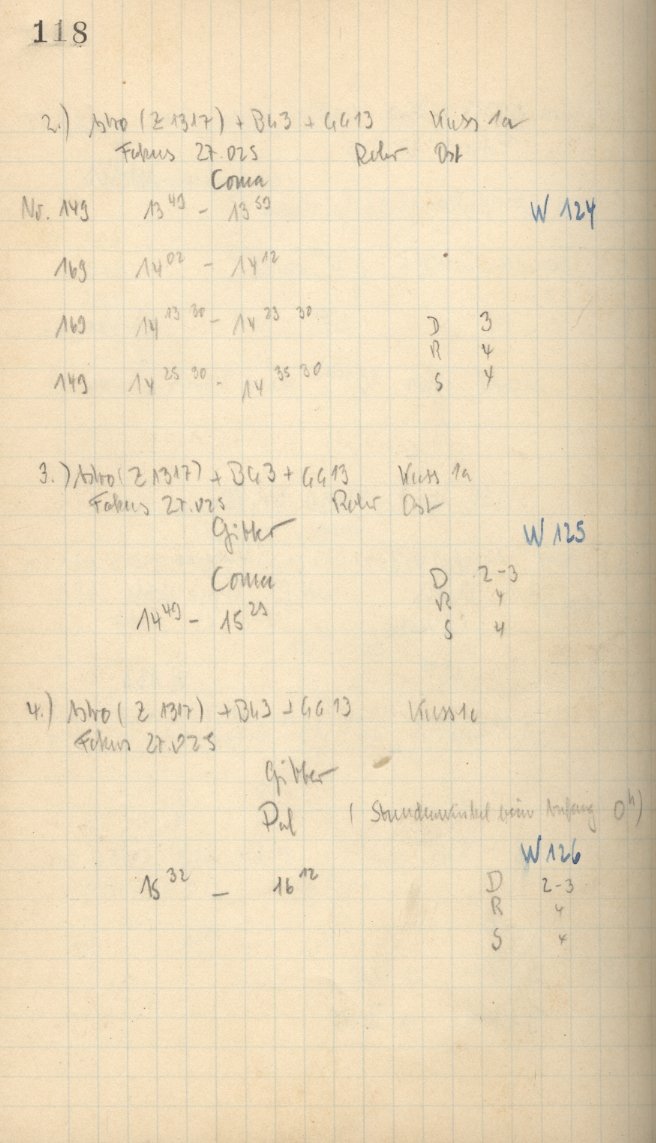 118
2.) Astro (Z 1317) + BG3 + GG13 Kuss 1a
Fokus 27.025 Rohr Ost
Coma
Nr. 149 13 49 – 13 59 W 124
169 14 02 – 14 12
169 14 13 30 – 14 23 30 D 3
R 4
149 14 25 30 - 14 35 30 S 4
3.) Astro (Z 1317) + BG3 + GG13 Kuss 1a
Fokus 27.025 Rohr Ost
Gitter W 125
Coma D 2-3
R 4
14 49 – 15 29 S 4
4.) Astro (Z 1317) + BG3 + GG13 Kuss 1a
Fokus 27.025
Gitter
(Stundenwinkel beim Anfang 0h)
W 126
15 32 – 16 12 D 2-3
R 4
S 4